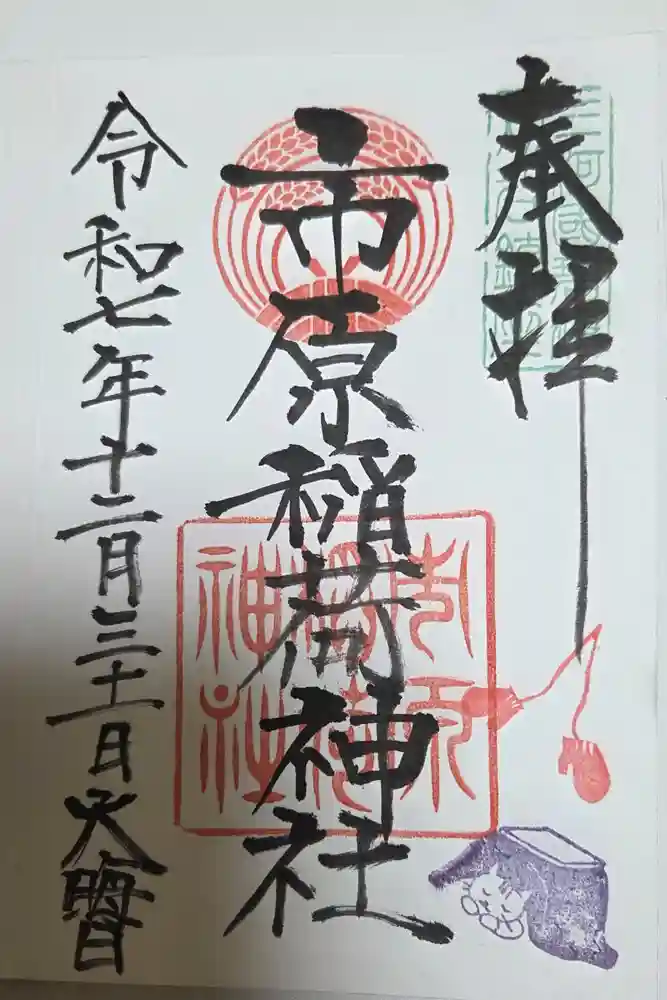 奉拝
市原稲荷神社
令和七年十二月三十一日 大晦日
市原
稲荷
神社